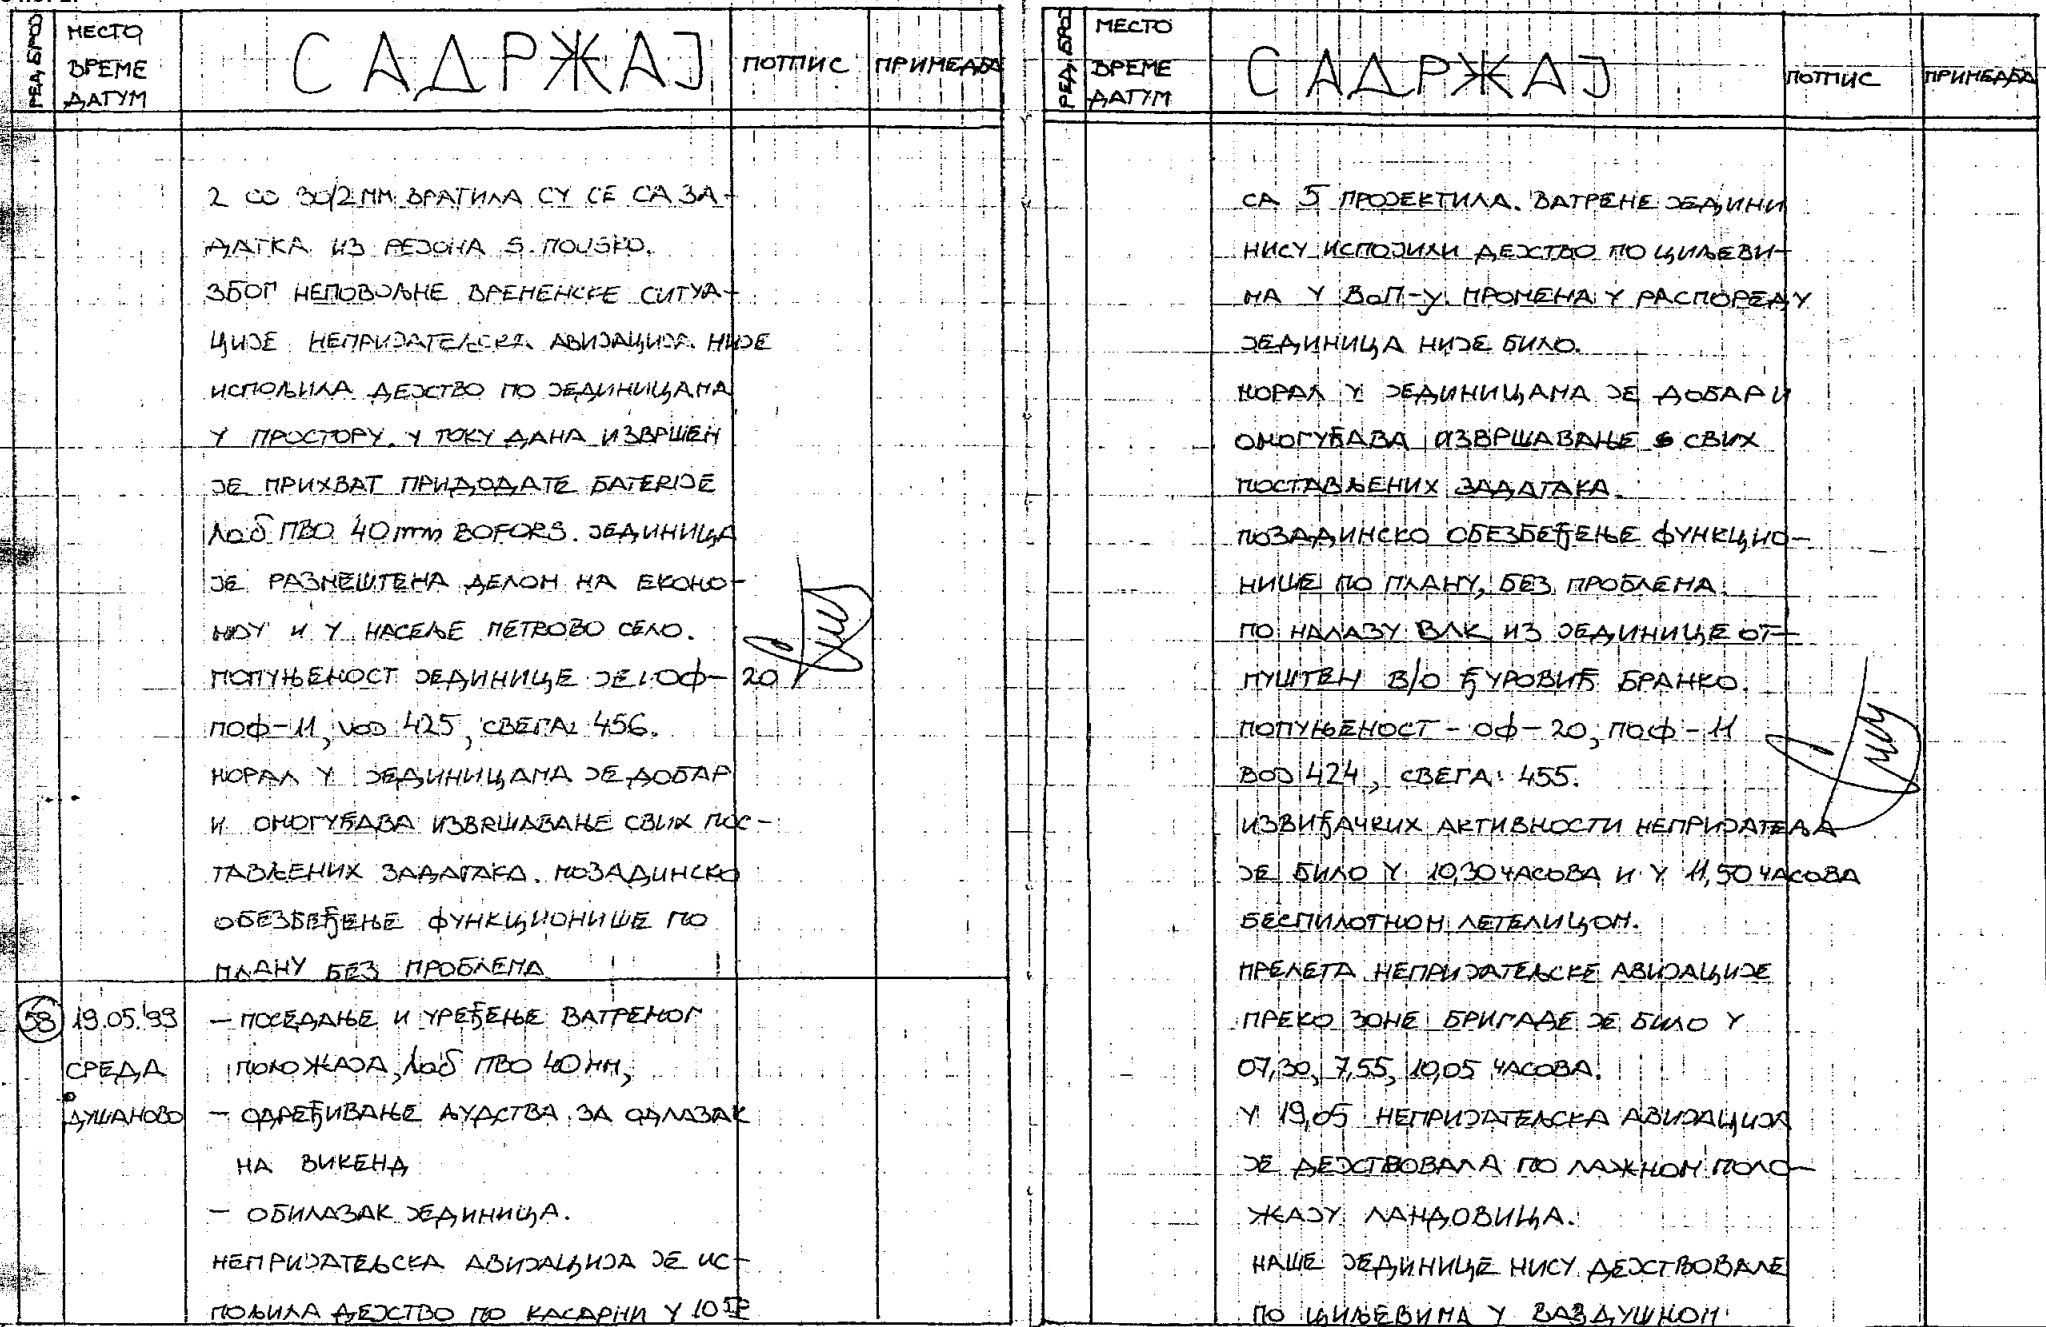 РЕД. БРОЈ
МЕСТО
ВРЕМЕ
ДАТУМ
САДРЖАЈ
ПОТПИС
ПРИМЕДБА
2 СО 30/2 ММ ВРАТИЛА СУ СЕ СА ЗА-
ДАТКА ИЗ РЕЈОНА S.
ЗБОГ НЕПОВОЉНЕ ВРЕМЕНСКЕ СИТУА-
ЦИЈЕ НЕПРИЈАТЕЉСКА АВИЈАЦИЈА НИЈЕ
ИСПОЉИЛА ДЕЈСТВО ПО ЈЕДИНИЦАМА
У ПРОСТОРУ. У ТОКУ ДАНА ИЗВРШЕН
ЈЕ ПРИХВАТ ПРИДОДАТЕ БАТЕРИЈЕ
Лаб ПВО 40 mm BOFORS. ЈЕДИНИЦА
ЈЕ РАЗМЕШТЕНА ДЕЛОМ НА ЕКОНО-
МИЈУ И У НАСЕЉЕ ПЕТРОВО СЕЛО.
ПОПУЊЕНОСТ ЈЕДИНИЦЕ ЈЕ: ОФ- 20
ПОФ-11, VOJ 425, СВЕГА: 456.
МОРАЛ У ЈЕДИНИЦАМА ЈЕ ДОБАР
И ОМОГУЋАВА ИЗВRШАВАЊЕ СВИХ ПОС-
ТАВЉЕНИХ ЗАДАТАКА. ПОЗАДИНСКО
ОБЕЗБЕЂЕЊЕ ФУНКЦИОНИШЕ ПО
ПЛАНУ БЕЗ ПРОБЛЕМА
58 19.05.'99 СРЕДА ДУШАНОВО
- ПОСЕДАЊЕ И УРЕЂЕЊЕ ВАТРЕНОГ
ПОЛОЖАЈА, Лаб ПВО 40 ММ,
- ОДРЕЂИВАЊЕ ЉУДСТВА ЗА ОДЛАЗАК
НА ВИКЕНД
- ОБИЛАЗАК ЈЕДИНИЦА.
НЕПРИЈАТЕЉСКА АВИЈАЦИЈА ЈЕ ИС-
ПОЉИЛА ДЕЈСТВО ПО КАСАРНИ У
РЕД. БРОЈ
МЕСТО
ВРЕМЕ
ДАТУМ
САДРЖАЈ
ПОТПИС
ПРИМЕДБА
СА 5 ПРОЈЕКТИЛА. ВАТРЕНЕ ЈЕДИНИ
НИСУ ИСПОЈИЛИ ДЕЈСТВО ПО ЦИЉЕВИ-
МА У ВаП-у. ПРОМЕНА У РАСПОРЕДУ
ЈЕДИНИЦА НИЈЕ БИЛО.
МОРАЛ У ЈЕДИНИЦАМА ЈЕ ДОБАР И
ОМОГУЋАВА ИЗВРШАВАЊЕ СВИХ
ПОСТАВЉЕНИХ ЗАДАТАКА.
ПОЗАДИНСКО ОБЕЗБЕЂЕЊЕ ФУНКЦИО-
НИШЕ ПО ПЛАНУ, БЕЗ ПРОБЛЕМА.
ПО НАЛАЗУ ВЛК ИЗ ЈЕДИНИЦЕ ОТ-
ПУШТЕН В/О ЂУРОВИЋ БРАНКО.
ПОПУЊЕНОСТ - ОФ - 20, ПОФ - 11
ВОЈ 424, СВЕГА: 455.
ИЗВИЂАЧКИХ АКТИВНОСТИ НЕПРИЈАТЕЉА
ЈЕ БИЛО У 10,30 ЧАСОВА И У 11,50 ЧАСОВА
БЕСПИЛОТНОМ ЛЕТЕЛИЦОМ.
ПРЕЛЕТА НЕПРИЈАТЕЉСКЕ АВИЈАЦИЈЕ
ПРЕКО ЗОНЕ БРИГАДЕ ЈЕ БИЛО У
07,30, 7,55, 10,05 ЧАСОВА.
У 19,05 НЕПРИЈАТЕЉСКА АВИЈАЦИЈА
ЈЕ ДЕЈСТВОВАЛА ПО ЛАЖНОМ ПОЛО-
ЖАЈУ ЛАНДОВИЦА.
НАШЕ ЈЕДИНИЦЕ НИСУ ДЕЈСТВОВАЛЕ
ПО ЦИЉЕВИМА У ВАЗДУШНОМ